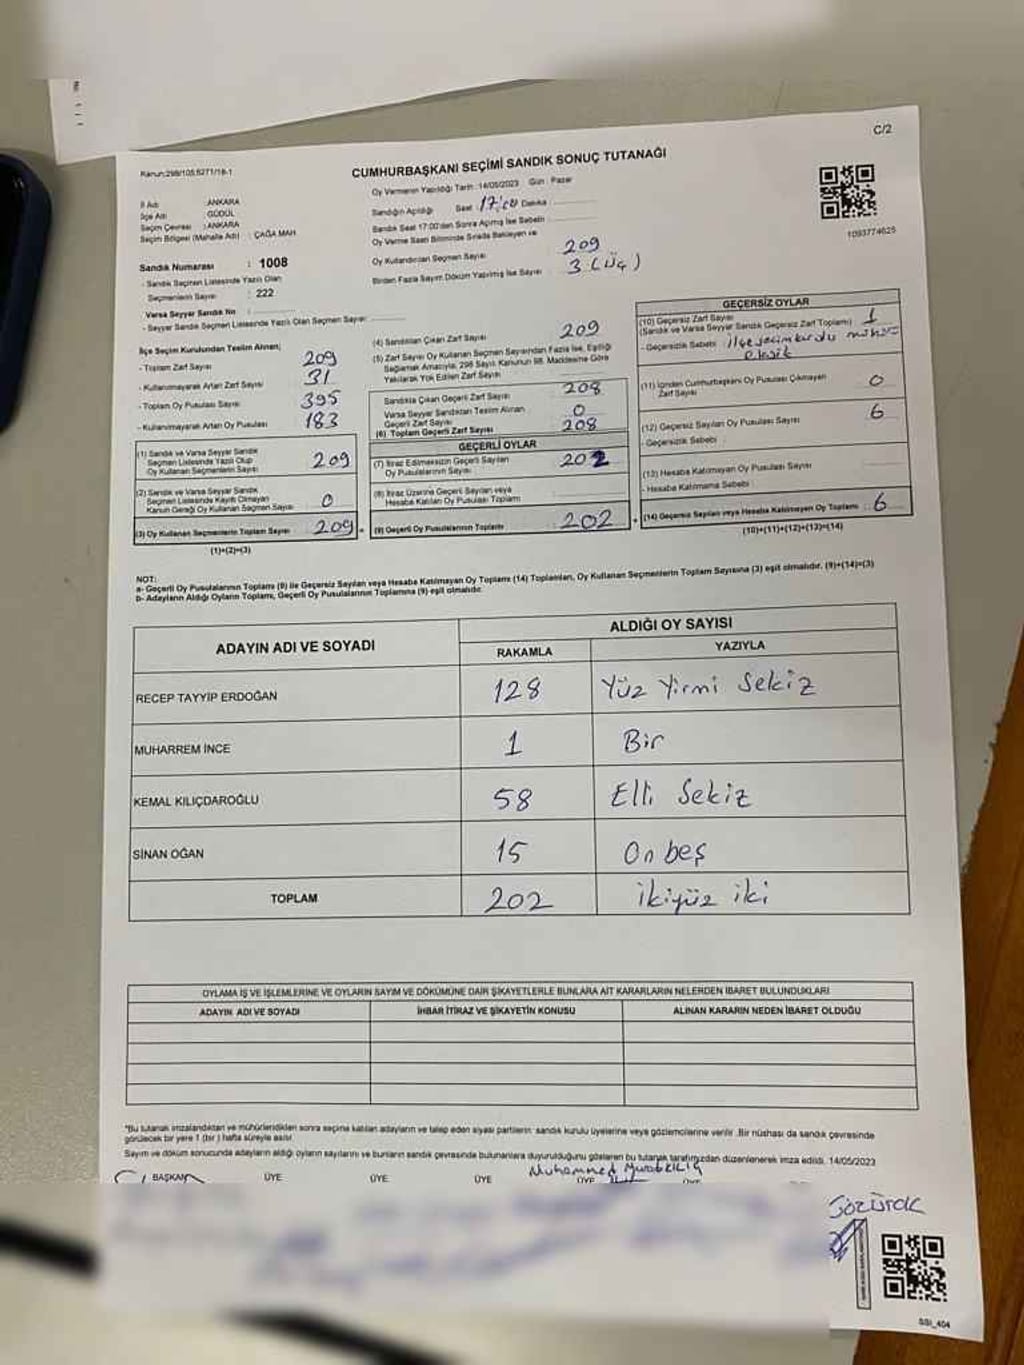 C/2
Kanun:298/105,6271/18-1
CUMHURBAŞKANI SEÇİMİ SANDIK SONUÇ TUTANAĞI
Oy Vermenin Yapıldığı Tarih :14/05/2023 Gün : Pazar
İl Adı : ANKARA
İlçe Adı : GÜDÜL
Seçim Çevresi : ANKARA
Seçim Bölgesi (Mahalle Adı) : ÇAĞA MAH
Sandık Numarası : 1008
- Sandık Seçmen Listesinde Yazılı Olan
Seçmenlerin Sayısı : 222
Varsa Seyyar Sandık No :
- Seyyar Sandık Seçmen Listesinde Yazılı Olan Seçmen Sayısı:
Sandığın Açıldığı Saat 17:00 Dakika
Sandık Saat 17:00'den Sonra Açılmış İse Sebebi
Oy Verme Saati Bitiminde Sırada Bekleyen ve
Oy Kullandırılan Seçmen Sayısı 209
Birden Fazla Sayım Döküm Yapılmış İse Sayısı 3 (üç)
1093774625
İlçe Seçim Kurulundan Teslim Alınan;
- Toplam Zarf Sayısı 209
- Kullanılmayarak Artan Zarf Sayısı 31
- Toplam Oy Pusulası Sayısı 395
- Kullanılmayarak Artan Oy Pusulası 183
(1) Sandık ve Varsa Seyyar Sandık
Seçmen Listesinde Yazılı Olup
Oy Kullanan Seçmenlerin Sayısı 209
(2) Sandık ve Varsa Seyyar Sandık
Seçmen Listesinde Kayıtlı Olmayan
Kanun Gereği Oy Kullanan Seçmen Sayısı 0
(3) Oy Kullanan Seçmenlerin Toplam Sayısı 209
(1)+(2)=(3)
(4) Sandıktan Çıkan Zarf Sayısı 209
(5) Zarf Sayısı Oy Kullanan Seçmen Sayısından Fazla İse, Eşitliği
Sağlamak Amacıyla, 298 Sayılı Kanunun 98. Maddesine Göre
Yakılarak Yok Edilen Zarf Sayısı
Sandıkta Çıkan Geçerli Zarf Sayısı 208
Varsa Seyyar Sandıktan Teslim Alınan
Geçerli Zarf Sayısı 0
(6) Toplam Geçerli Zarf Sayısı 208
GEÇERLİ OYLAR
(7) İtiraz Edilmeksizin Geçerli Sayılan
Oy Pusulalarının Sayısı 202
(8) İtiraz Üzerine Geçerli Sayılan veya
Hesaba Katılan Oy Pusulası Toplamı
(9) Geçerli Oy Pusulalarının Toplamı 202
GEÇERSİZ OYLAR
(10) Geçersiz Zarf Sayısı
(Sandık ve Varsa Seyyar Sandık Geçersiz Zarf Toplamı) 1
- Geçersizlik Sebebi : ilçe seçim kurulu mührü
eksik
(11) İçinden Cumhurbaşkanı Oy Pusulası Çıkmayan
Zarf Sayısı 0
(12) Geçersiz Sayılan Oy Pusulası Sayısı 6
- Geçersizlik Sebebi :
(13) Hesaba Katılmayan Oy Pusulası Sayısı
- Hesaba Katılmama Sebebi :
(14) Geçersiz Sayılan veya Hesaba Katılmayan Oy Toplamı 6
(10)+(11)+(12)+(13)=(14)
NOT:
a- Geçerli Oy Pusulalarının Toplamı (9) ile Geçersiz Sayılan veya Hesaba Katılmayan Oy Toplamı (14) Toplamları, Oy Kullanan Seçmenlerin Toplam Sayısına (3) eşit olmalıdır. (9)+(14)=(3)
b- Adayların Aldığı Oyların Toplamı, Geçerli Oy Pusulalarının Toplamına (9) eşit olmalıdır.
ADAYIN ADI VE SOYADI ALDIĞI OY SAYISI
RAKAMLA YAZIYLA
RECEP TAYYİP ERDOĞAN 128 Yüz Yirmi Sekiz
MUHARREM İNCE 1 Bir
KEMAL KILIÇDAROĞLU 58 Elli Sekiz
SİNAN OĞAN 15 On beş
TOPLAM 202 ikiyüz iki
OYLAMA İŞ VE İŞLEMLERİNE VE OYLARIN SAYIM VE DÖKÜMÜNE DAİR ŞİKAYETLERLE BUNLARA AİT KARARLARIN NELERDEN İBARET BULUNDUKLARI
ADAYIN ADI VE SOYADI İHBAR İTİRAZ VE ŞİKAYETİN KONUSU ALINAN KARARIN NEDEN İBARET OLDUĞU
*Bu tutanak imzalandıktan ve mühürlendikten sonra seçime katılan adayların ve talep eden siyasi partilerin sandık kurulu üyelerine veya gözlemcilerine verilir. Bir nüshası da sandık çevresinde
görülecek bir yere 1 (bir) hafta süreyle asılır.
Sayım ve döküm sonucunda adayların aldığı oyların sayılarını ve bunların sandık çevresinde bulunanlara duyurulduğunu gösteren bu tutanak tarafımızdan düzenlenerek imza edildi. 14/05/2023
BAŞKAN ÜYE ÜYE ÜYE ÜYE ÜYE
SSI_404